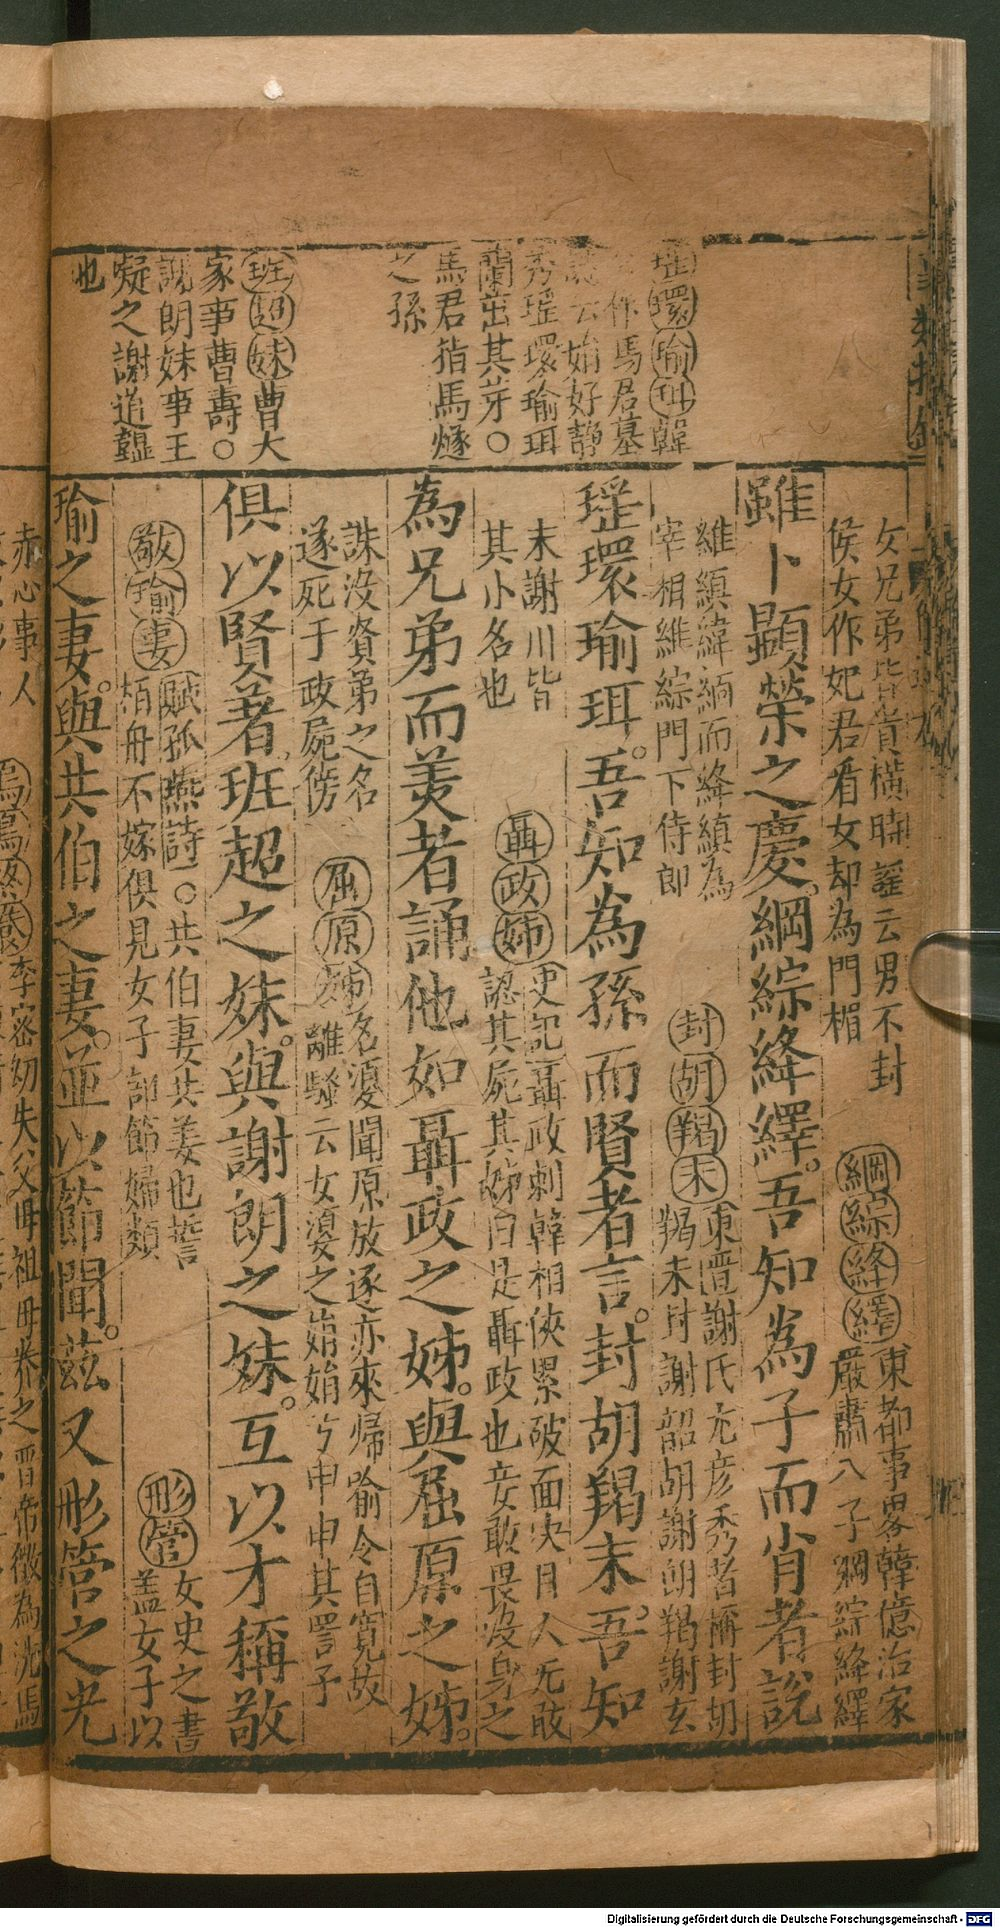 瑶環瑜珥韓
作馬君墓
誌云始好靜
秀瑶環瑜珥
蘭茁其芽○
馬君指馬燧
之孫
班超妹曹大
家事曹壽○
謝朗妹事王
凝之謝道韞
也
女兄弟皆貴橫時謡云男不封
侯女作妃君看女却為門楣
綱綜絳繹東都事畧韓億治家
嚴肅八子綱綜絳繹
雖卜顯榮之慶綱綜絳繹吾知為子而肖者說
維縝緯緬而絳縝為
宰相維綜門下侍郎
封胡羯末東晉謝氏尤彦秀者稱封胡
羯末封謝韶胡謝朗羯謝玄
瑶環瑜珥吾知為孫而賢者言封胡羯末吾知
末謝川皆
其小名也
聶政姊史記聶政刺韓相俠累破面決目人无敢
認其屍其姊曰是聶政也妾敢畏没身之
為兄弟而美者誦他如聶政之姊與屈原之姊
誅没賢弟之名
遂死于政屍傍
屈原姊名嬃聞原放逐亦來歸喻令自寬故
離騷云女嬃之媊媊兮申申其詈予
俱以賢著班超之妹與謝朗之妹互以才稱敬
敬瑜妻賦孤燕詩○共伯妻共姜也誓
栢舟不嫁俱見女子部節婦類
彤管女史之書
盖女子以
瑜之妻與共伯之妻並以節聞茲又彤管之光
赤心事人
李密幼失父母祖母养之晋帝徵為洗馬
Digitalisierung gefördert durch die Deutsche Forschungsgemeinschaft - DFG